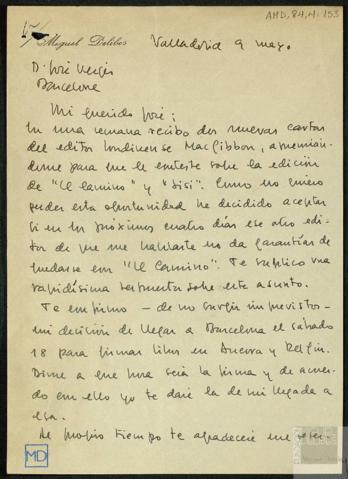 AMD, 84, 4, 153
Miguel Delibes Valladolid 9 mayo.
D. José Vergés
Barcelona
Mi querido José:
En una semana recibo dos nuevas cartas
del editor londinense MacGibbon, apremián-
dome para que le conteste sobre la edición
de "El Camino" y "Sisí". Como no quiero
perder esta oportunidad he decidido aceptar
si en los próximos cuatro días ese otro edi-
tor de que me hablaste no da garantías de
quedarse con "El Camino". Te suplico una
rapidísima respuesta sobre este asunto.
Te confirmo — de no surgir imprevistos —
mi decisión de llegar a Barcelona el sábado
18 para firmar libros en Ancora y Delfín.
Dime a que hora será la firma y de acuer-
do con ello yo te daré la de mi llegada a
esa.
Al propio tiempo te agradeceré me reser-
MD